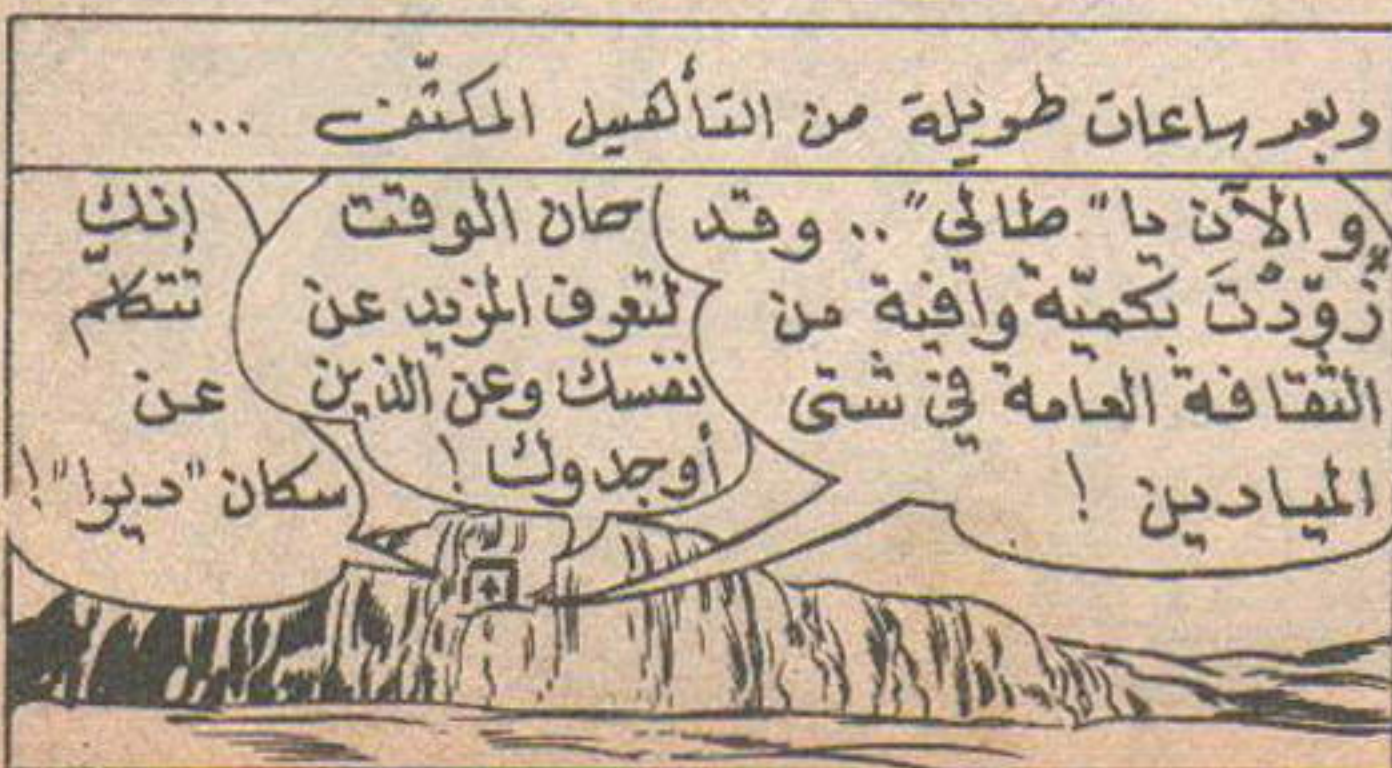 وبعد ساعات طويلة من التأهيل المكثّف ...
و الآن يا "طالي" .. وقد
زُوِّدْتَ بكميّة وافية من
الثقافة العامة في شتى
الميادين !
حان الوقت
لتعرف المزيد عن
نفسك وعن الذين
أوجدوك !
إنك
تتكلّم
عن
سكان "ديرا" !